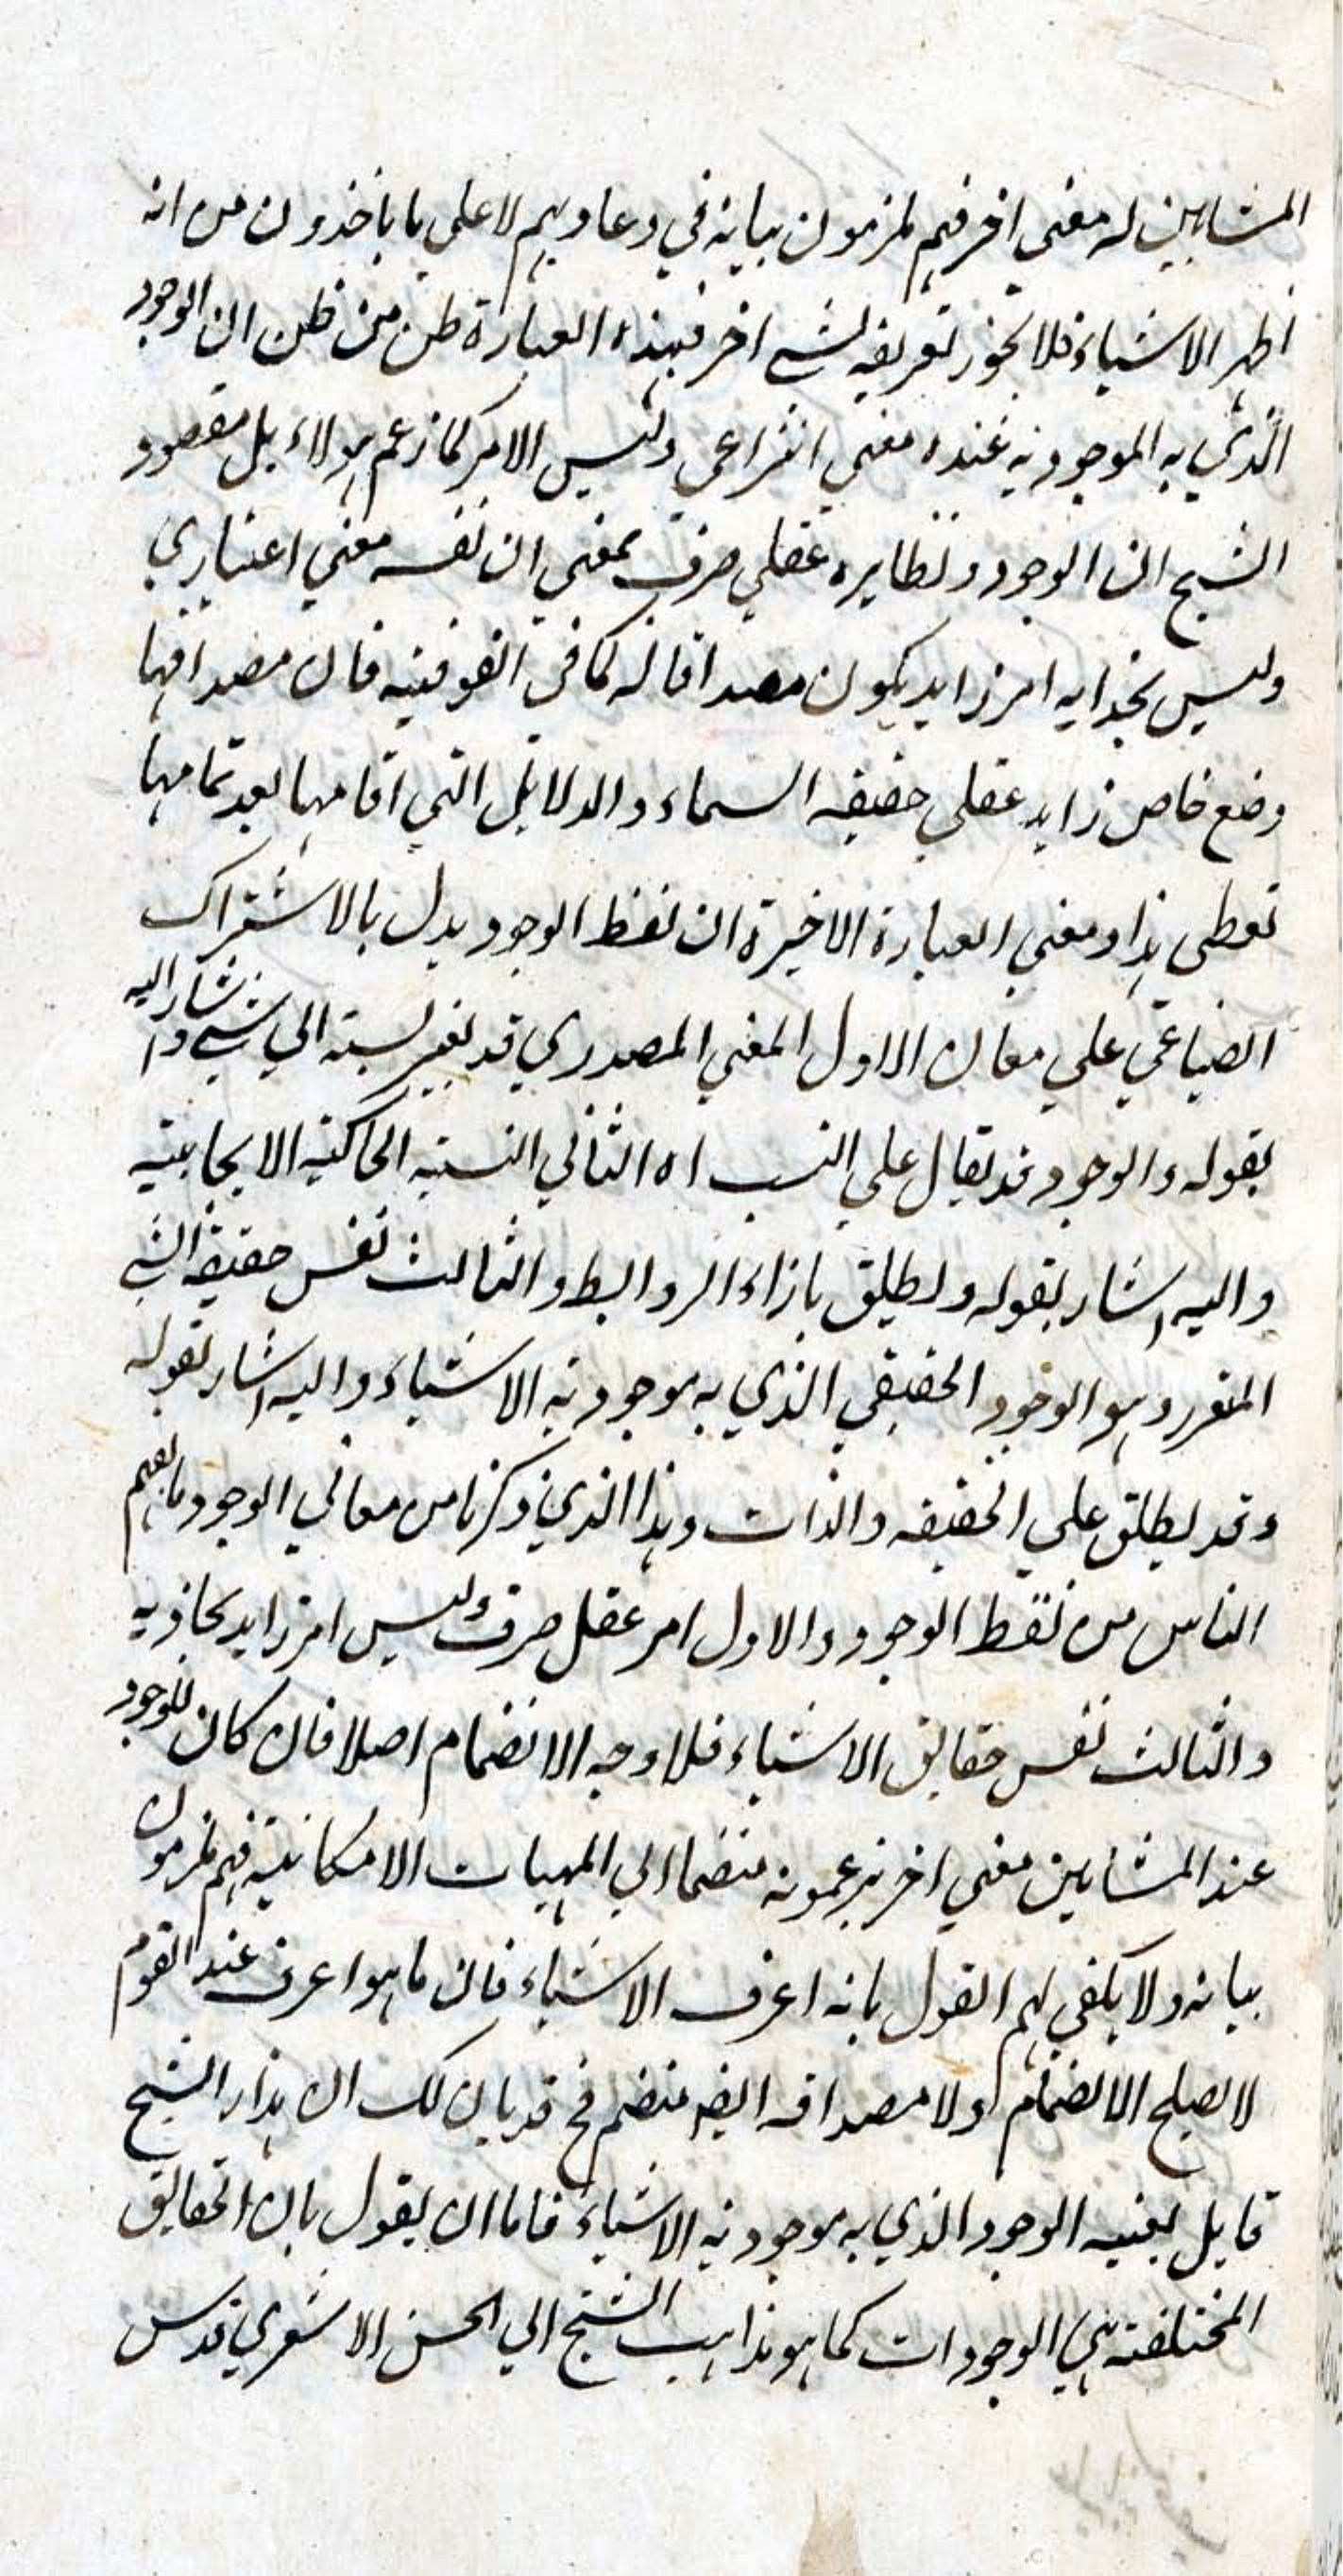 المشايين له معني اخر فهم ملزمون ببيانه في دعاويهم لا علي ما ياخذون من انه
اظهر الاشياء فلا يجوز تعريفه لشي اخر فبهذه العبارة ظن من ظن ان الوجود
الذي به الموجودية عنده معني انتزاعي وليس الامر كما زعم هولاء بل مقصود
الشيخ ان الوجود و نظايره عقلي صرف بمعني ان نفسه معني اعتباري
وليس بحذايه امر زايد يكون مصداقا له كما في الفوقية فان مصداقها
وضع خاص زايد عقلي حقيقه السماء والدلايل التي اقامها بعد تمامها
تعطي هذا و معني العبارة الاخيرة ان لفظ الوجود يدل بالاشتراك
الصناعي علي معان الاول المعني المصدري قد يغير نسبته الي شي واشار اليه
بقوله والوجود قد يقال علي النسب اه الثاني النسبة الحاكية الايجابية
واليه اشار بقوله ويطلق بازاء الروابط والثالث نفس حقيقة الشي
المتقرر وهو الوجود الحقيقي الذي به موجودية الاشياء واليه اشار بقوله
وقد يطلق علي الحقيقه والذات وهذا الذي ذكرنا من معاني الوجود ما يفهم
الناس من لفظ الوجود والاول امر عقلي صرف وليس امر زايد يحاذيه
والثالث نفس حقايق الاشياء فلا وجه الانضمام اصلا فان كان للوجود
عند المشايين معني اخر يزعمونه منضما الي المهيات الامكانية فهم ملزمون
بيانه ولا يكفي لهم القول بانه اعرف الاشياء فان ما هو اعرف عند القوم
لا يصلح الانضمام ولا مصداقه ايضه منضم فح قد بان لك ان هذا الشيخ
قايل بعينيه الوجود الذي به موجودية الاشياء فاما ان يقول بان الحقايق
المختلفة هي الوجودات كما هو مذاهب الشيخ ابي الحسن الاشعري قدس